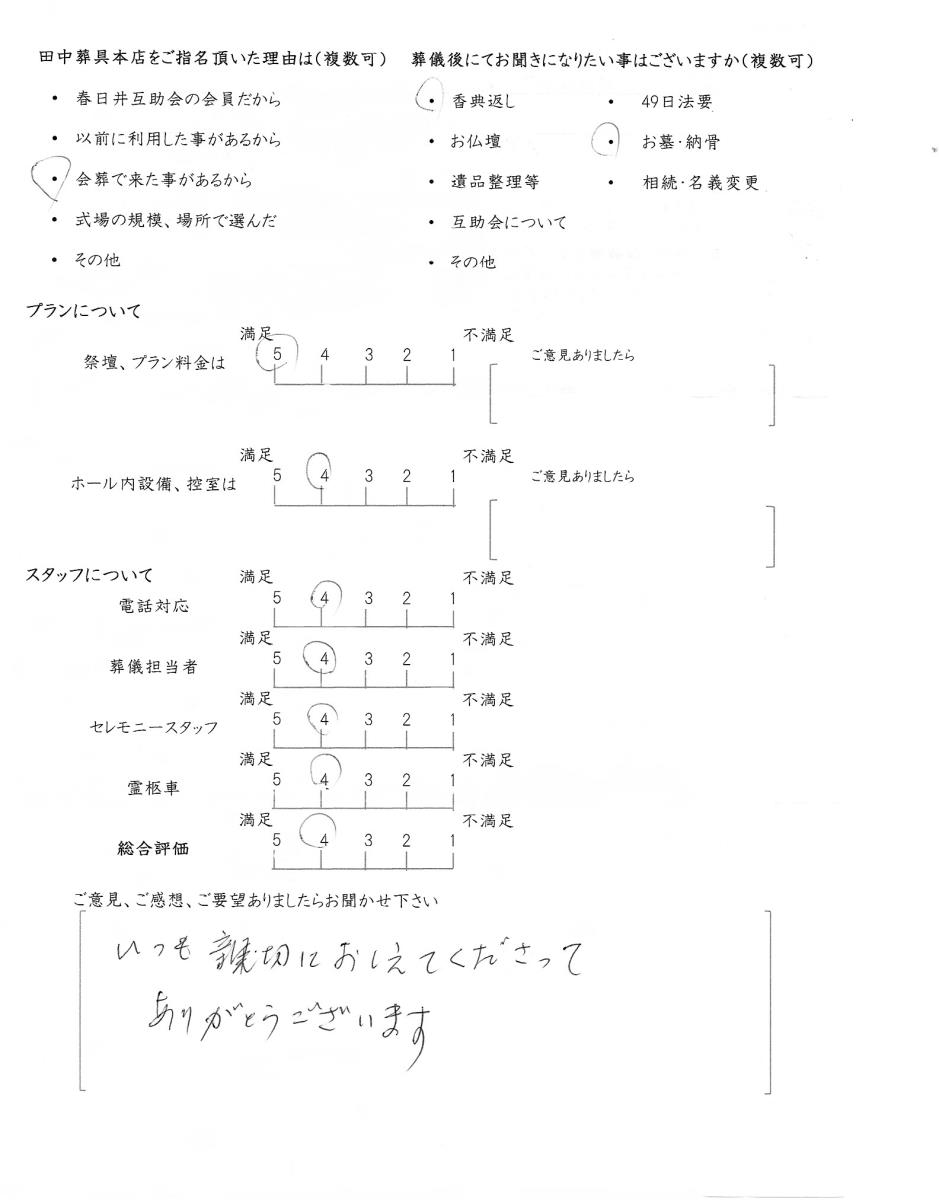 田中葬具本店をご指名頂いた理由は(複数可)
・ 春日井互助会の会員だから
・ 以前に利用した事があるから
・ 会葬で来た事があるから
・ 式場の規模、場所で選んだ
・ その他
葬儀後にてお聞きになりたい事はございますか(複数可)
・ 香典返し ・ 49日法要
・ お仏壇 ・ お墓・納骨
・ 遺品整理等 ・ 相続・名義変更
・ 互助会について
・ その他
プランについて
満足 不満足
祭壇、プラン料金は 5 4 3 2 1 ご意見ありましたら
満足 不満足
ホール内設備、控室は 5 4 3 2 1 ご意見ありましたら
スタッフについて
満足 不満足
電話対応 5 4 3 2 1
満足 不満足
葬儀担当者 5 4 3 2 1
満足 不満足
セレモニースタッフ 5 4 3 2 1
満足 不満足
霊柩車 5 4 3 2 1
満足 不満足
総合評価 5 4 3 2 1
ご意見、ご感想、ご要望ありましたらお聞かせ下さい
いつも親切におしえてくださって
ありがとうございます